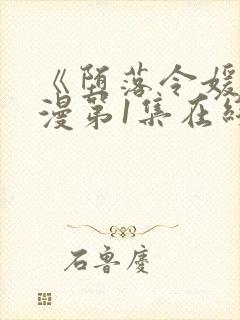 《堕落令媛
漫第1集在
石鲁庆